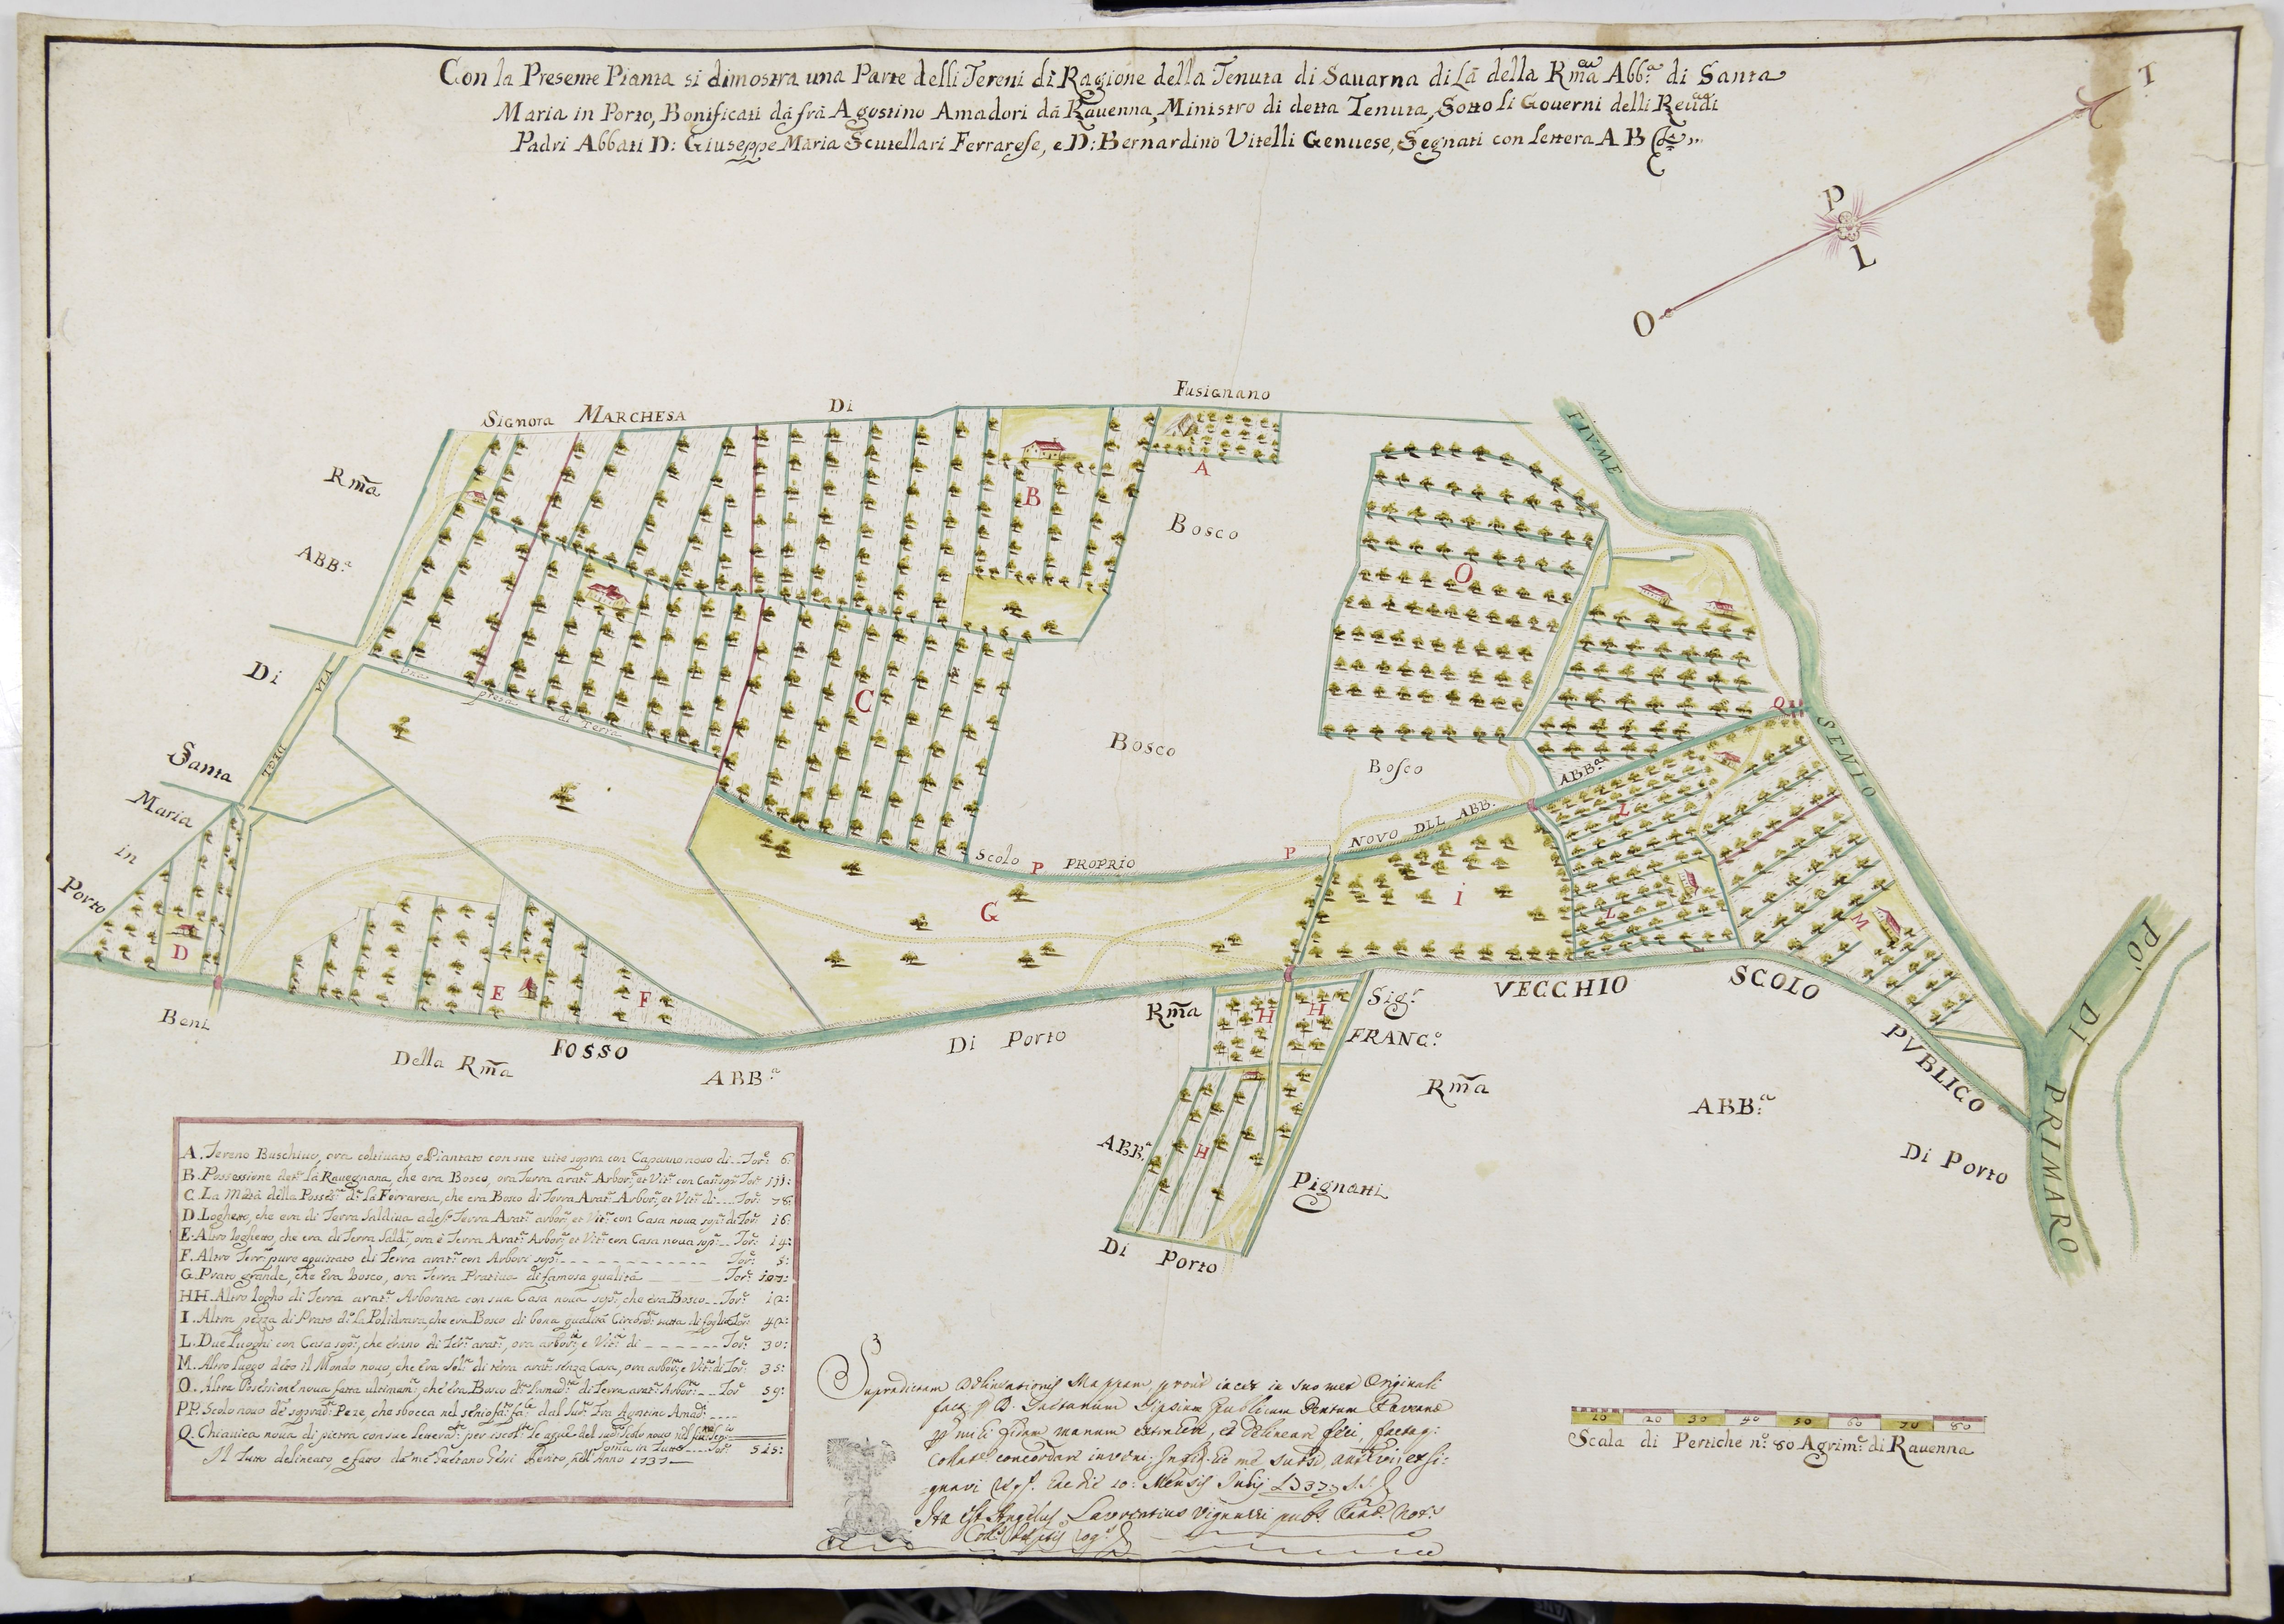 Con la Presente Pianta si dimostra una Parte delli Tereni di Ragione della Tenuta di Sauarna di Là della Rma Abb.a di Santa
Maria in Porto, Bonificati dà frà Agostino Amadori dà Rauenna, Ministro di detta Tenuta, Sotto li Gouerni delli Reudi
Padri Abbati D: Giuseppe Maria Scutellari Ferrarese, e D: Bernardino Vitelli Genuese, Segnati con lettera A B
T
P
L
O
Signora MARCHESA Di Fusignano
FIVME
Rma
ABB.a
Di
Santa
Maria
in
Porto
VIA
DEL
B
A
Bosco
O
C
pressa di Terra
Bosco
Bosco
Q
SENIO
ABB.a
NOVO DLL ABB.
L
Scolo P PROPRIO
P
G
I
L
M
D
E
F
PO' DI PRIMARO
VECCHIO SCOLO PVBLICO
Beni
Della Rma
FOSSO
ABB.a
Di Porto
Rma
H
H
Sig.r
FRANC.o
Rma
ABB.a
Di Porto
ABB.a
H
Pignatti
Di Porto
A. Tereno Buschiuo, ora coltiuato e Piantato con sue uite sopra con Capanno nouo di Tor.e 6:
B. Possessione det.a la Rauegnana, che era Bosco, ora Terra arat.a Arbor.a et Vit.a con Cas.a sop.a Tor.e 111:
C. La Mità della Posses.e d.a la Ferraresa, che era Bosco di Terra Arat.a Arbor.a, et Vit.a di Tor.e 78:
D. Loghetto, che era di Terra Salditia adesso Terra Arat.a arbor.a, et Vit.a con Casa noua sop.a di Tor.e 16:
E. Altro loghetto, che era di Terra Sald.a, ora è Terra Arat.a Arbor.a et Vit.a con Casa noua sop.a Tor.e 19:
F. Altro Terr.o pure aquistato di Terra arat.a con Arbori sop.a Tor.e 5:
G. Prato grande, che Era bosco, ora Terra Pratiua di famosa qualità Tor.e 107:
HH. Altro logho di Terra arat.a Arborata con sua Casa noua sop.a, che era Bosco Tor.e 12:
I. Altra pezza di Prato d.o la Polidrara, che era Bosco di bona qualità tutta di foglie Tor.e 42:
L. Due Luoghi con Casa sop.a, che erano di Ter.a arat.a, ora arbor.a, e Vit.a di Tor.e 30:
M. Altro luogo detto il Mondo nouo, che Era Sol.o di terra arat.a senza Casa, ora arbor.a e Vit.a di Tor.e 35:
O. Altra Posessione noua fatta ultimam.e, che era Bosco di Terra arat.a Arbor.a Tor.e 59:
PP. Scolo nouo de soprad.i Peze, che sbocca nel senio dal Sud.o Fra Agostino Amad.i
Q. Chiauica noua di pietra con sue per iscol.e le aque del sud.o Scolo nouo nel fiume Senio
Soma in Tutto Tor.e 515:
Il Tutto delineato, e fatto da me Gaetano Perito, nell Anno 1737
Supradictam Delineationis Mappam, prout iacet in suo met Originali
publicum Peritum Rauennae
mihi fidam manum extrahere, et delineare feci, factaq:
Collatione concordare inveni; In fidem me subscripsi
Mensis Julij 1737
Ita est Angelus Laurentius Vignuzzi pub.s Not.s
10 20 30 40 50 60 70 80
Scala di Pertiche n.o 80 Agrim.e di Rauenna